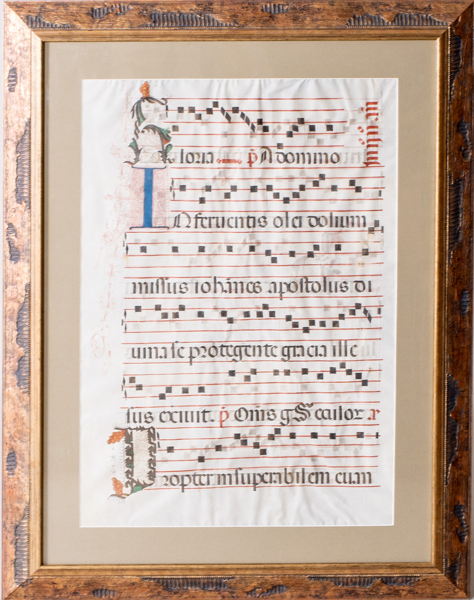 loria p̄ A domino
In feruentis olei dolium
missus iohānes apostolus di
uina se protegente gracia ille
sus exiuit. p̄
Propter insuperabilem euan